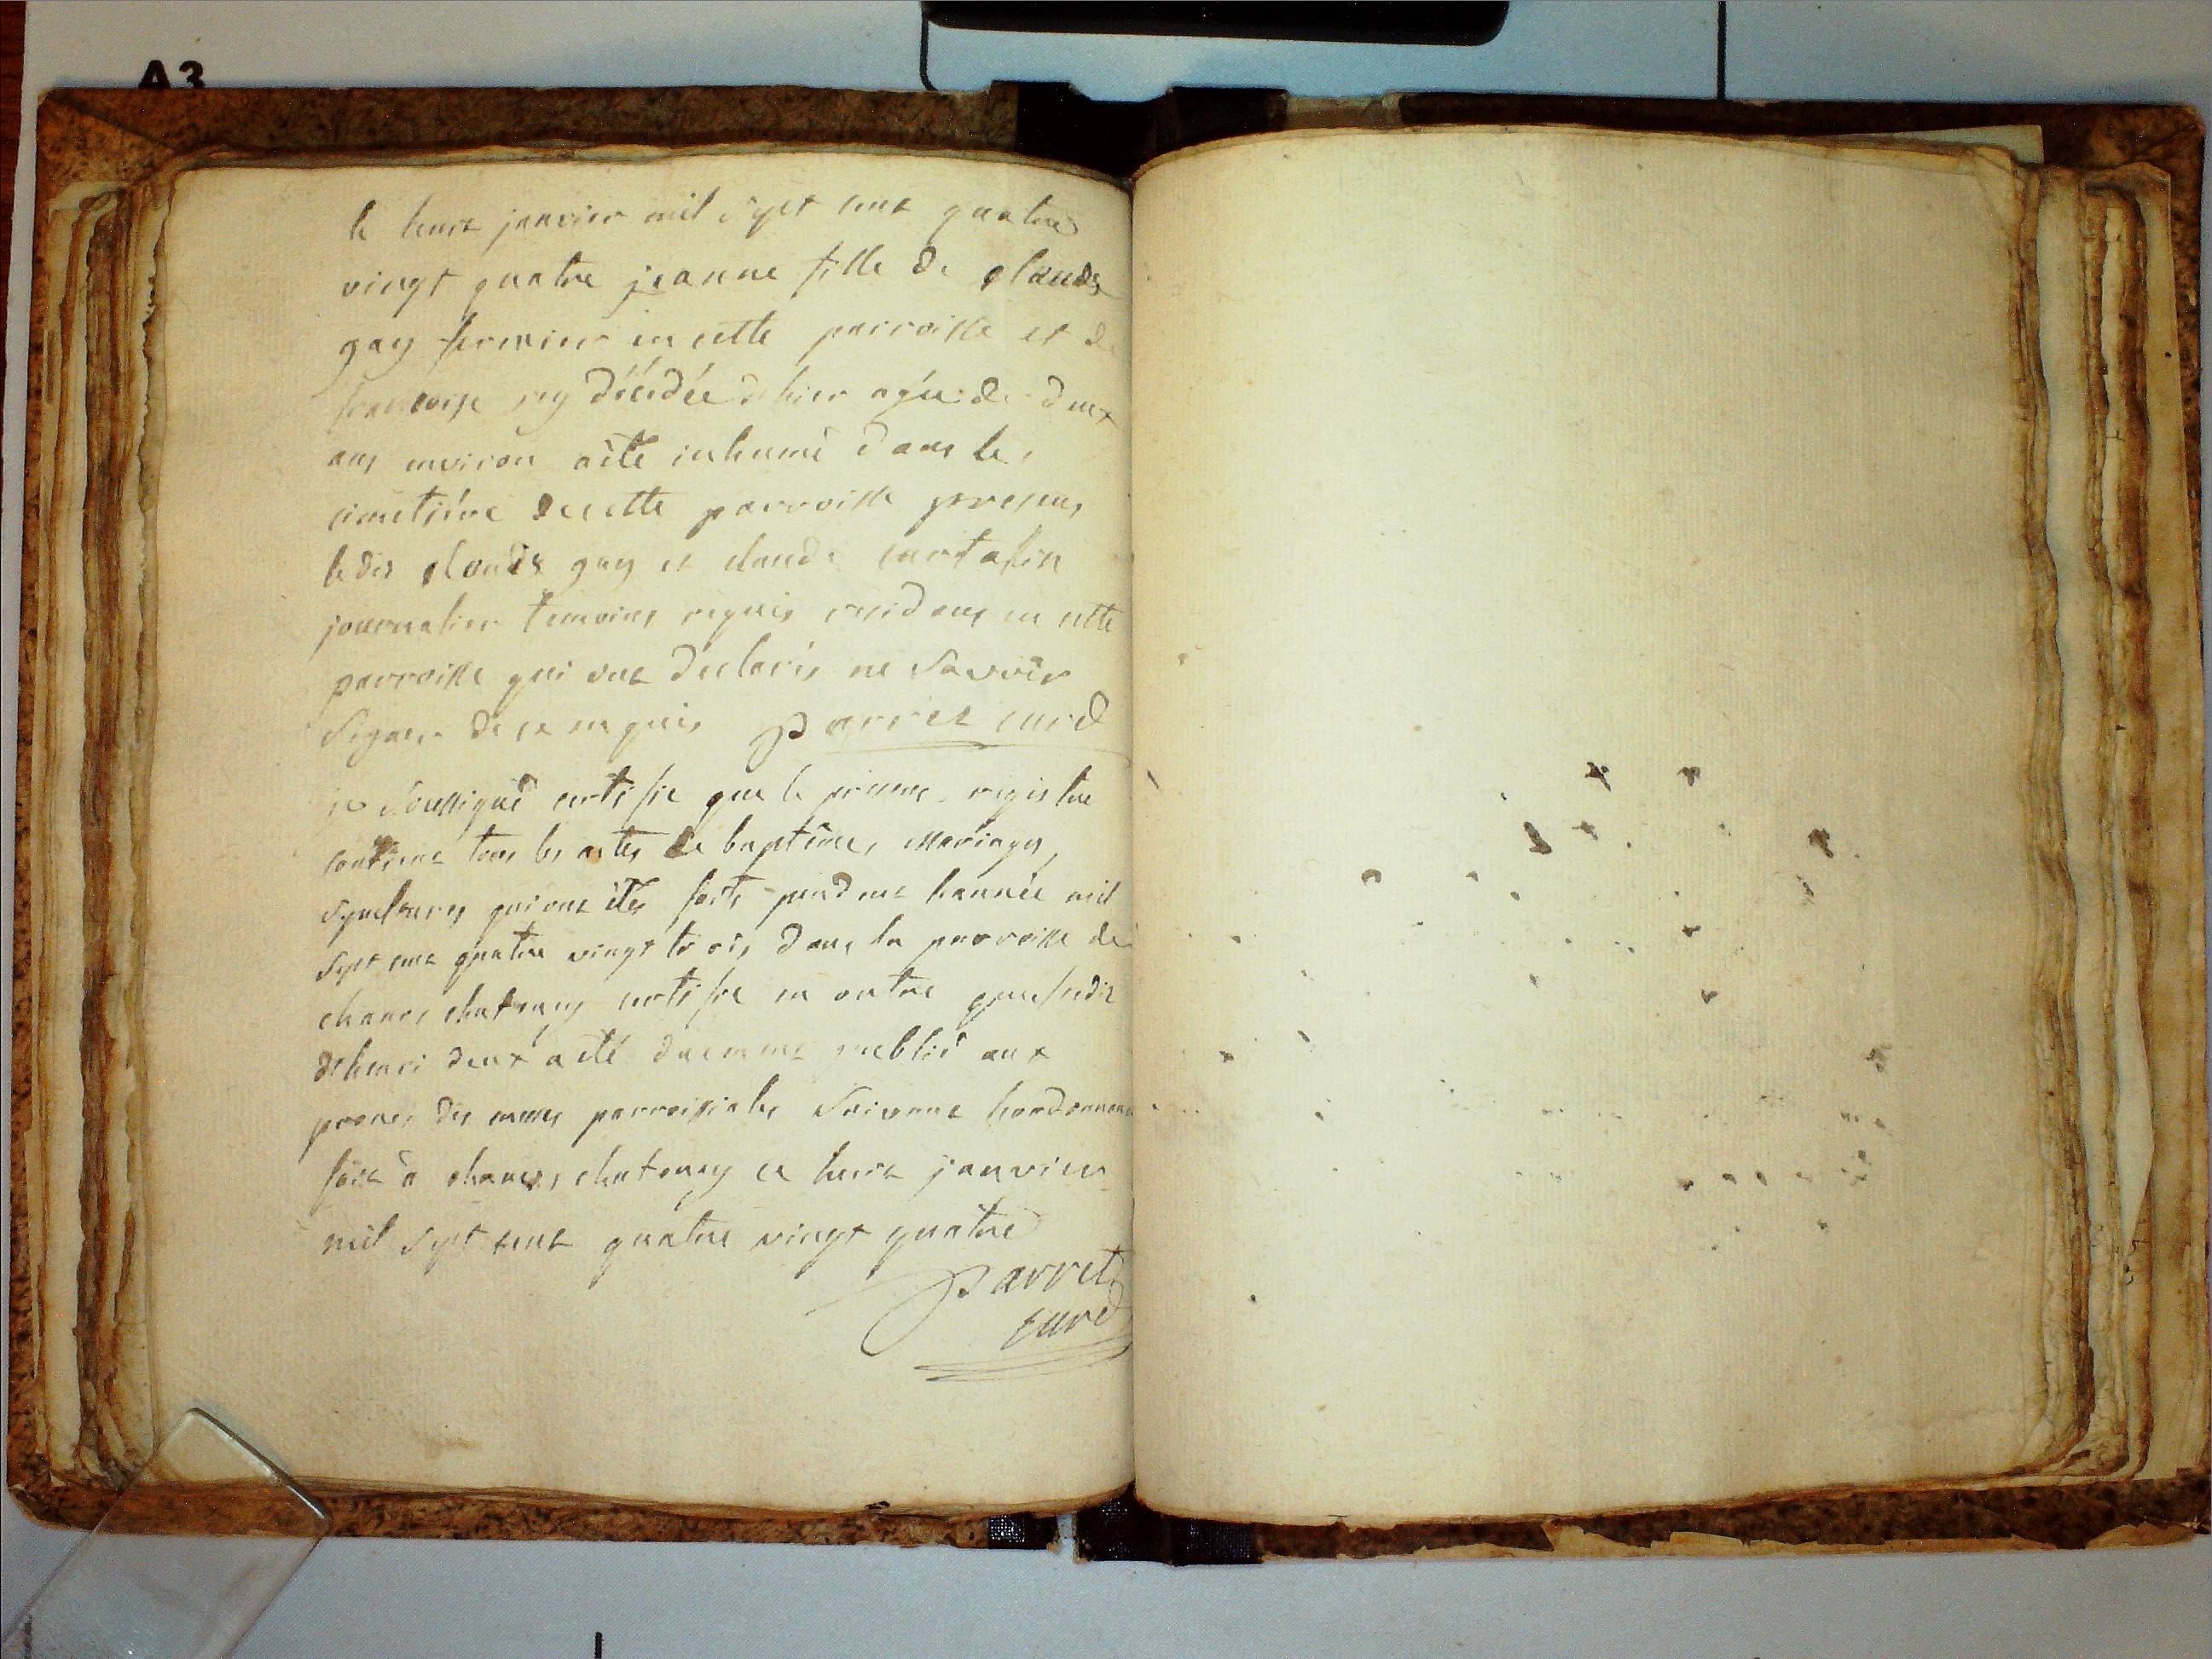 A3
le huit janvier mil sept cent quatre
vingt quatre jeanne fille de claude
gay fermier en cette parroisse et de
francoise rey décédée d hier agée de deux
ans environ a été inhumé dans le
cimetiére de cette parroisse presens
ledit claude gay et claude
journalier temoins requis residens en cette
parroisse qui ont declarés ne savoir
signer de ce enquis parret curé
je soussigné certifie que le present registre
contient tous les actes de baptêmes, mariages,
sepultures qui ont étés faits pendant lannée mil
sept cent quatre vingt trois dans la parroisse de
chanes chatenay certifie en outre que ledit
dhenri deux a eté duement publié aux
prones des messes parroissiales suivant lordonnance
fait a chanes chatenay ce huit janvier
mil sept cent quatre vingt quatre
parret
curé